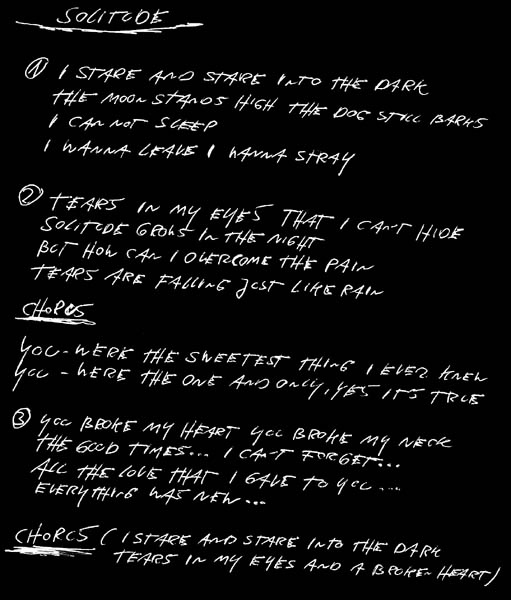 SOLITUDE
① I STARE AND STARE INTO THE DARK
THE MOON STANDS HIGH THE DOG STILL BARKS
I CAN NOT SLEEP
I WANNA LEAVE I WANNA STRAY
② TEARS IN MY EYES THAT I CAN'T HIDE
SOLITUDE GROWS IN THE NIGHT
BUT HOW CAN I OVERCOME THE PAIN
TEARS ARE FALLING JUST LIKE RAIN
CHORUS
YOU - WERE THE SWEETEST THING I EVER KNEW
YOU - WERE THE ONE AND ONLY, YES IT'S TRUE
③ YOU BROKE MY HEART YOU BROKE MY NECK
THE GOOD TIMES... I CAN'T FORGET...
ALL THE LOVE THAT I GAVE TO YOU....
EVERYTHING WAS NEW...
CHORUS (I STARE AND STARE INTO THE DARK
TEARS IN MY EYES AND A BROKEN HEART)